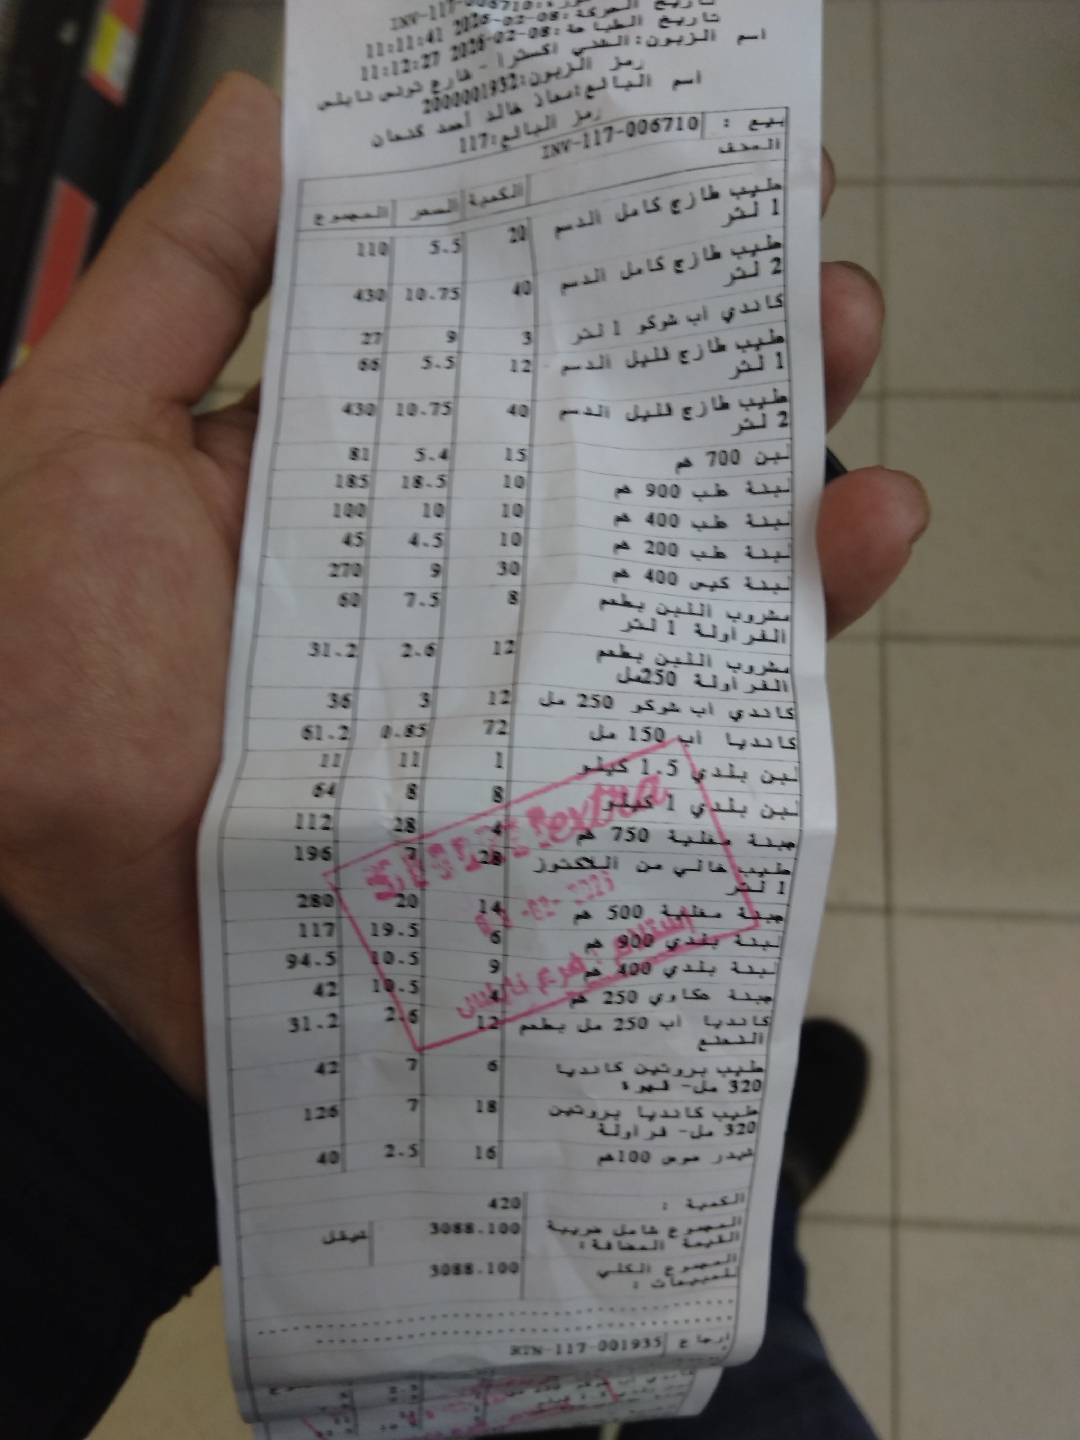 INV-117-006710
تاريخ الحركة: 2026-02-08 11:11:41
تاريخ الطباعة: 2026-02-08 11:12:27
اسم الزبون: الشني اكسترا - شارع تونس نابلس
رمز الزبون: 2000001932
اسم البائع: معاذ خالد أحمد كنعان
رمز البائع: 117
بيع : INV-117-006710
الصنف الكمية السعر المجموع
حليب طازج كامل الدسم 20 5.5 110
1 لتر
حليب طازج كامل الدسم 40 10.75 430
2 لتر
كاندي اب شوكو 1 لتر 3 9 27
حليب طازج قليل الدسم 12 5.5 66
1 لتر
حليب طازج قليل الدسم 40 10.75 430
2 لتر
لبن 700 غم 15 5.4 81
لبنة علب 900 غم 10 18.5 185
لبنة علب 400 غم 10 10 100
لبنة علب 200 غم 10 4.5 45
لبنة كيس 400 غم 30 9 270
مشروب اللبن بطعم 8 7.5 60
الفراولة 1 لتر
مشروب اللبن بطعم 12 2.6 31.2
الفراولة 250مل
كاندي اب شوكو 250 مل 12 3 36
كانديا اب 150 مل 72 0.85 61.2
لبن بلدي 1.5 كيلو 1 11 11
لبن بلدي 1 كيلو 8 8 64
جبنة مغلية 750 غم 4 28 112
حليب خالي من اللاكتوز 28 7 196
1 لتر
جبنة مغلية 500 غم 14 20 280
لبنة بلدي 900 غم 6 19.5 117
لبنة بلدي 400 غم 9 10.5 94.5
جبنة عكاوي 250 غم 4 10.5 42
كانديا اب 250 مل بطعم 12 2.6 31.2
النعنع
حليب بروتين كانديا 6 7 42
320 مل- قهوة
حليب كانديا بروتين 18 7 126
320 مل- فراولة
شيدر صوص 100غم 16 2.5 40
الكمية : 420
المجموع شامل ضريبة 3088.100 شيقل
القيمة المضافة :
المجموع الكلي 3088.100
للمبيعات :
إرجاع RTN-117-001935
extra
استلام : فرع نابلس